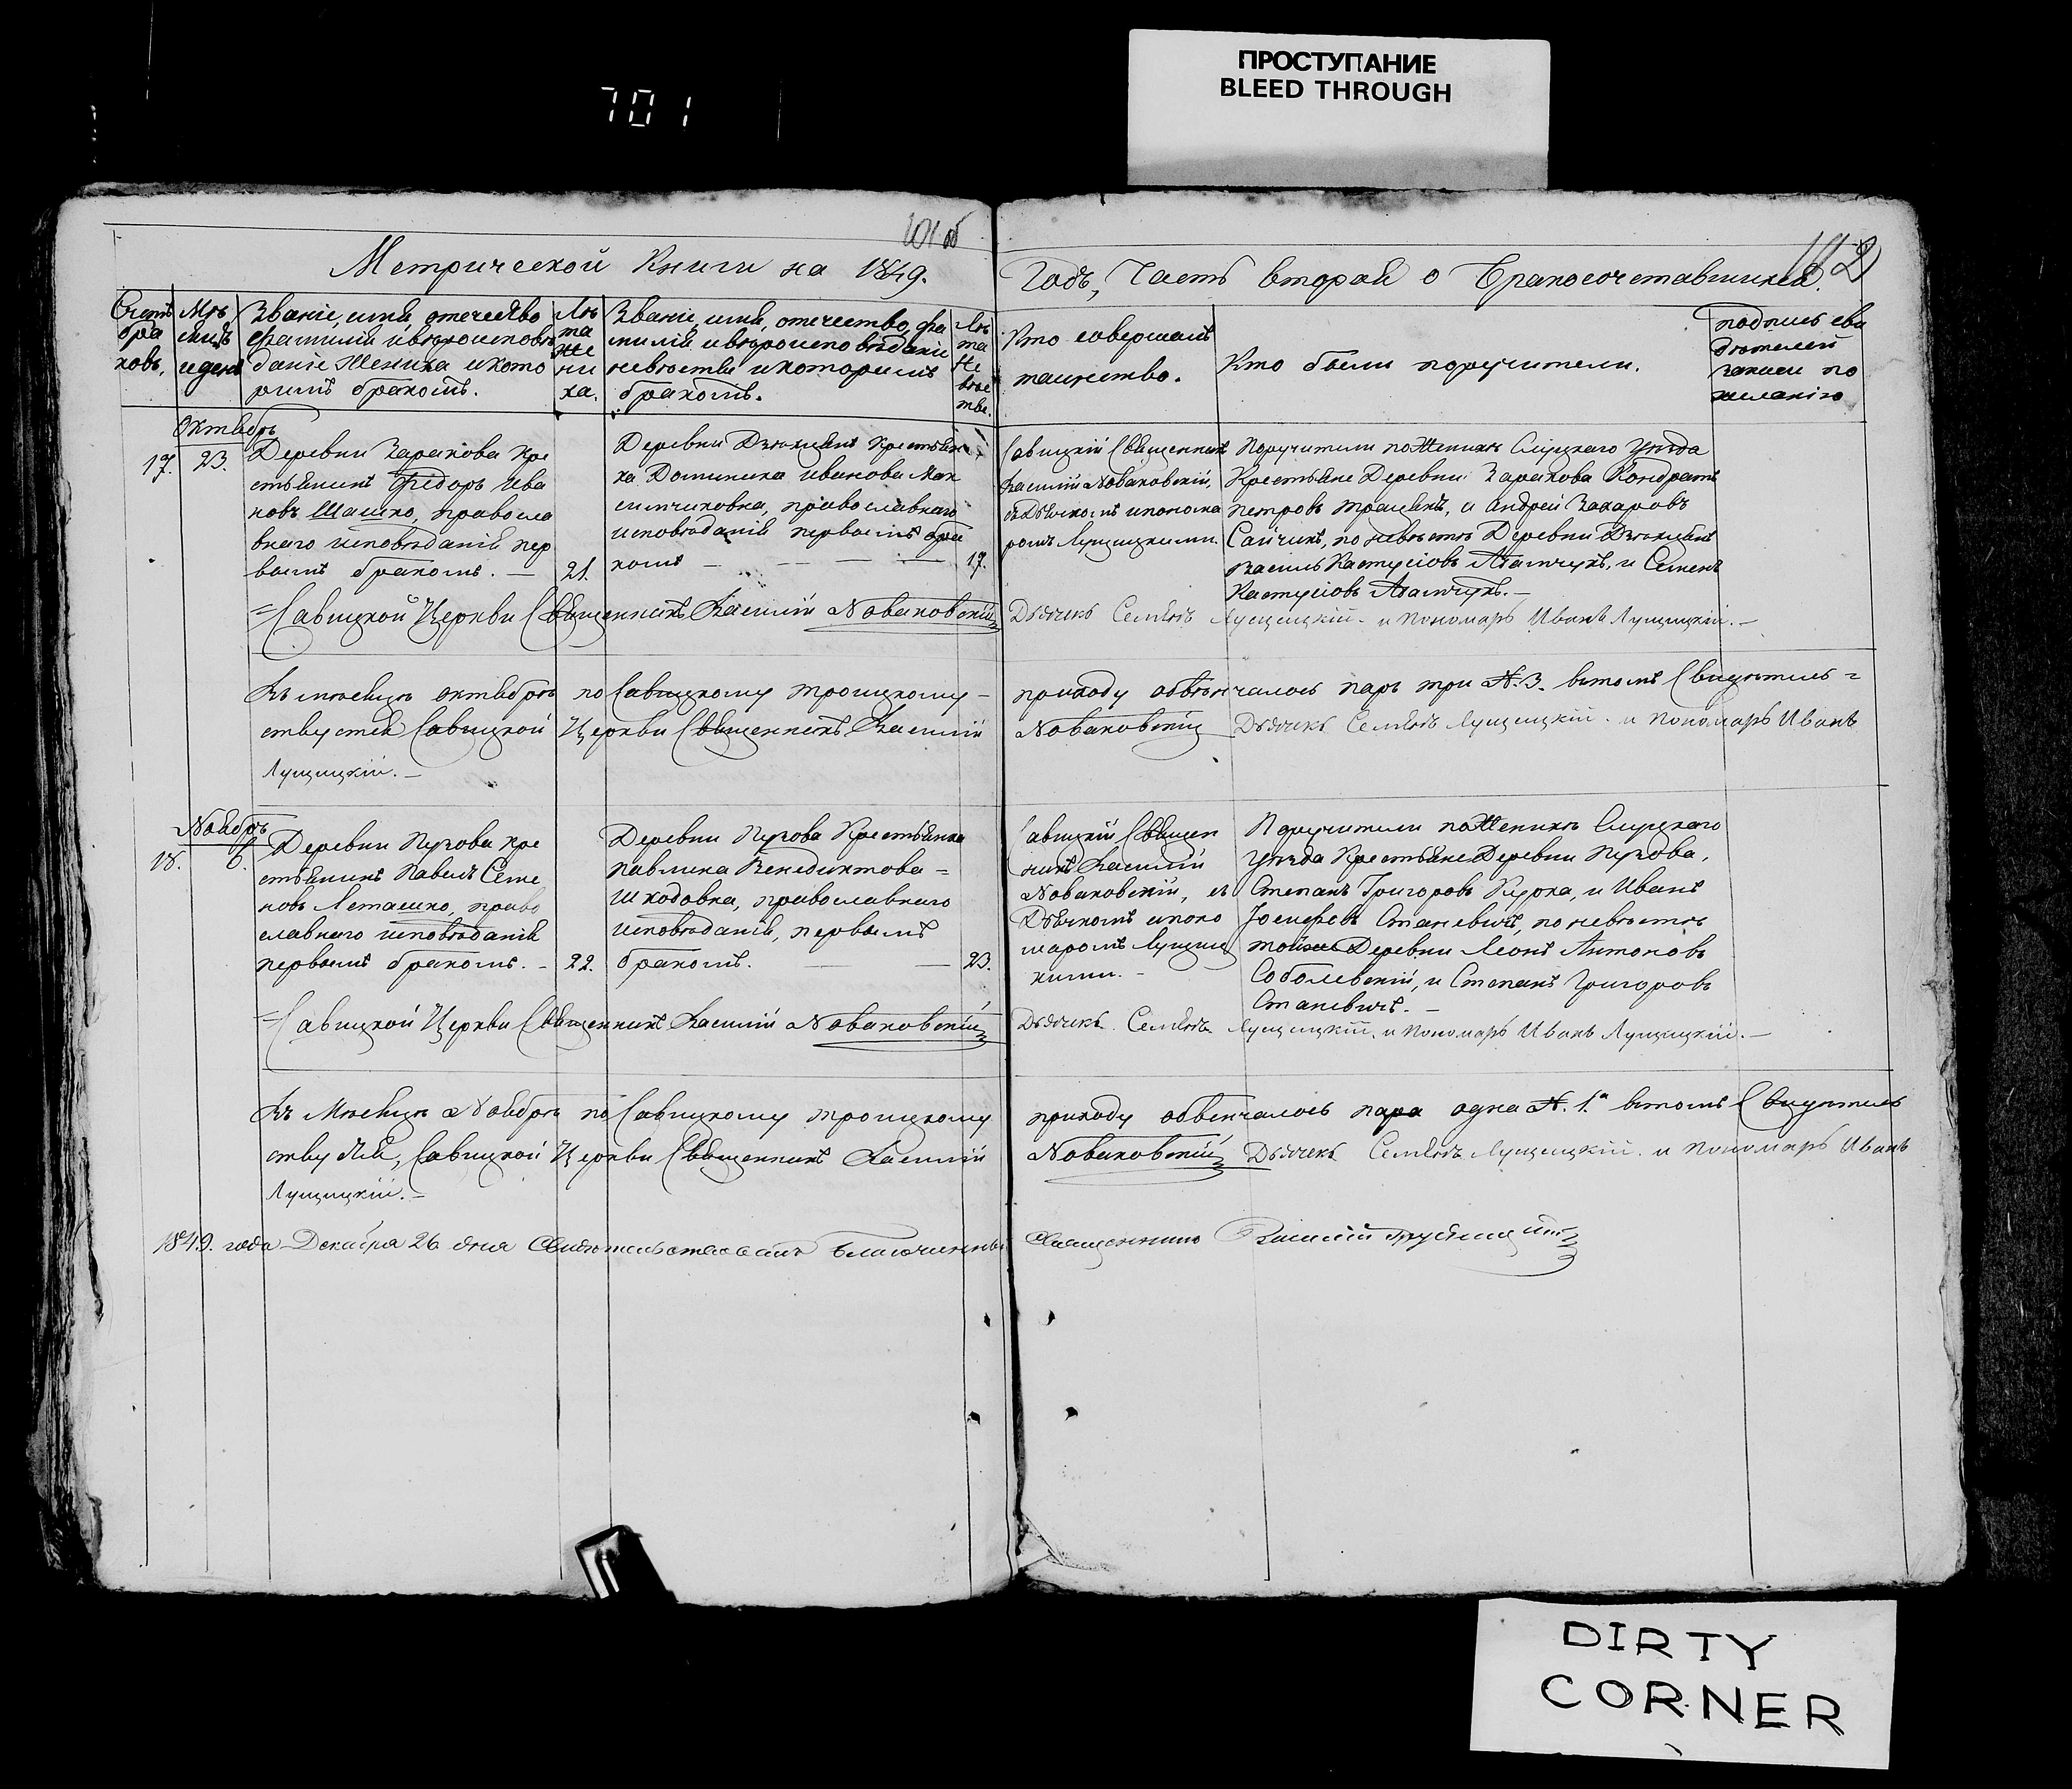 ПРОСТУПАНИЕ
BLEED THROUGH
701
101 об
102
Метрической Книги на 1849.
Годъ, Часть вторая о Бракосочетавшихся.
Счетъ
бра
ковъ.
Мѣ
сяцъ
и день
Званіе, имя, отечество
фамилія и вѣроисповѣ
даніе Жениха и кото
римъ бракомъ.
Лѣ
та
Же
ни
ха.
Званіе, имя, отечество, фа
милія и вѣроисповѣданіе
невѣсты и которимъ
бракомъ.
Лѣ
та
Не
вѣс
ты.
Кто совершалъ
таинство.
Кто были поручители.
подпись сви
дѣтелей
записи по
желанію
Октябрь
17.
23.
Деревни Заракова кре
стьянинъ Федоръ Ива
новъ Шашко, правосла
внаго исповѣданія пер
вымъ бракомъ. —
21.
Деревни Крестьян
ка Домникия Иванова Мак
симчиковна, православнаго
исповѣданія первымъ бра
комъ —
17.
Савицкій Священникъ
Василій Новаковскій,
съ Дьячкомъ и понома
ромъ Лущицкими.
Поручители по Женихѣ Слуцкаго Уѣзда
Крестьяне Деревни Заракова Кондратъ
Петровъ и Андрей Захаровъ
Сайчикъ, по невѣстѣ Деревни
Василь Кастусіовъ Адамчукъ, и Семенъ
Кастусіовъ Адамчукъ. —
=Савицкой Церкви Священникъ Василій Новаковскій
Дьячекъ Семіонъ Лущицкій. и Пономарь Иванъ Лущицкій. —
Въ мѣсяцѣ октябрѣ по Савицкому троицкому –
приходу обвѣнчалось паръ три №. 3. въ томъ Свидѣтель=
ствуетъ Савицкой Церкви Священникъ Василій
Новаковскій Дьячекъ Семіонъ Лущицкій. и Пономарь Иванъ
Лущицкій. —
Ноябрь
18.
6.
Деревни Пузова кре
стьянинъ Павелъ Семе
новъ Леташко, право
славнаго исповѣданія
первымъ бракомъ. –
22.
Деревни Пузова Крестьянка
Павлина Венедиктова =
Шкодовна, православнаго
исповѣданія, первымъ
бракомъ. —
23.
Савицкій Священ
никъ Василій
Новаковскій, съ
Дьячкомъ и поно
маромъ Лущиц
кими. –
Поручители по Женихѣ Слуцкаго
уѣзда Крестьяне Деревни Пузова,
Степанъ Григоровъ Курка, и Иванъ
Іосифовъ Станевичъ, по невѣстѣ
тойже Деревни Леонъ Антоновъ
Соболевскій, и Степанъ Григоровъ
Станевичъ. –
=Савицкой Церкви Священникъ Василій Новаковскій
Дьячекъ Семіонъ Лущицкій. и Пономарь Иванъ Лущицкій. —
Въ Мѣсяцѣ Ноябрѣ по Савицкому троицкому
приходу обвенчалось пара одна №. 1.а въ томъ Свидѣтель
ствуетъ, Савицкой Церкви Священникъ Василій
Новаковскій Дьячекъ Семіонъ Лущицкій. и Пономарь Иванъ
Лущицкій. —
1849. года Декабря 26 дня Свидѣтельствовалъ Благочинный
Священникъ Василій
DIRTY
CORNER